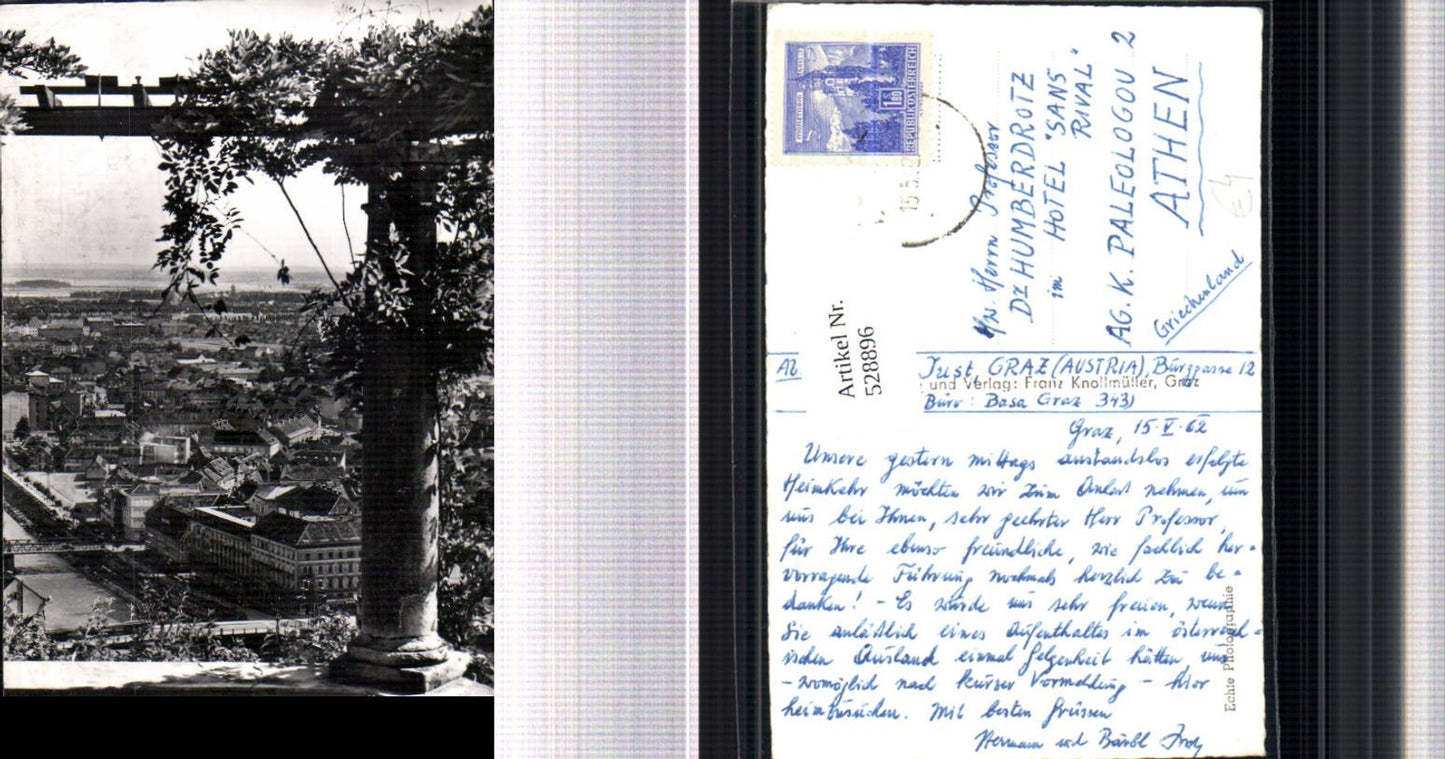 1S80
REPUBLIK ÖSTERREICH
15.5.
Herrn Professor
Dr HUMBERDROTZ
im HOTEL "SANS
RIVAL"
AG. K. PALEOLOGOU 2
ATHEN
Griechenland
Artikel Nr.
528896
GRAZ (AUSTRIA), Bürggasse 12
und Verlag: Franz Knollmüller, Graz
Büro: Basa Graz 3431
Graz, 15.V.62
Unsere gestern mittags anstandslos erfolgte
Heimkehr möchten wir zum Anlaß nehmen, um
uns bei Ihnen, sehr geehrter Herr Professor,
für Ihre ebenso freundliche, wie fachlich her-
vorragende Führung nochmals herzlich zu be-
danken! - Es würde uns sehr freuen, wenn
Sie anläßlich eines Aufenthaltes im österreich-
ischen Ausland einmal Gelgenheit hätten, uns
- womöglich nach kurzer Vormeldung - hier
heimzusuchen. Mit besten Grüssen
Hermann und Bärbl
Echte Photographie